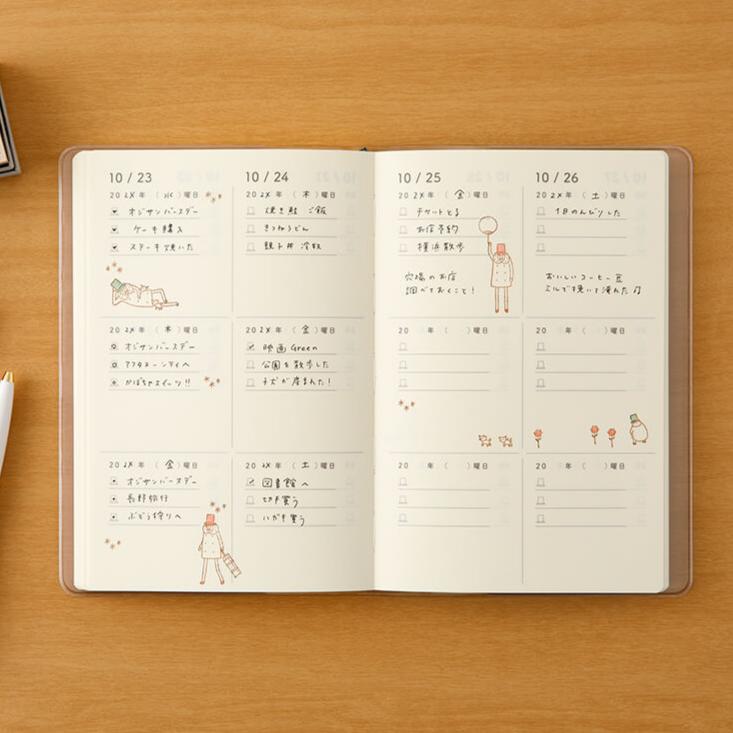 10 / 23
202X年 (水)曜日
オジサンバースデー
ケーキ購入
ステーキで焼いた
20 2X 年 (木)曜日
オジサンバースデー
アフタヌーンティへ
かぼちゃスイーツ!!
20 2X 年 (金)曜日
オジサンバースデー
長野旅行
ぶどう狩りへ
10 / 24
202X年 (木)曜日
焼き鮭 ご飯
きつねうどん
親子丼
202X年 (金)曜日
映画 Green
公園を散歩した
子犬が産まれた!
202X年 (土)曜日
図書館へ
切手買う
ハガキ買う
10 / 25
202X年 (金)曜日
チケットとる
お店予約
横浜散歩
穴場のお店
調べておくこと!
20 年 ( )曜日
20 年 ( )曜日
10 / 26
202X年 (土)曜日
1日のんびりした
おいしいコーヒー豆
ミルで挽いて淹れた♫
20 年 ( )曜日
20 年 ( )曜日